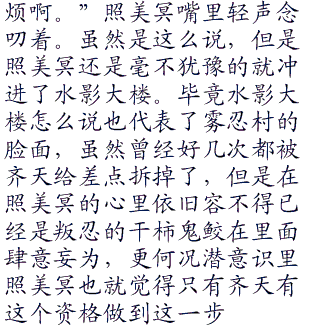 烦啊。”照美冥嘴里轻声念
叨着。虽然是这么说，但是
照美冥还是毫不犹豫的就冲
进了水影大楼。毕竟水影大
楼怎么说也代表了雾忍村的
脸面，虽然曾经好几次都被
齐天给差点拆掉了，但是在
照美冥的心里依旧容不得已
经是叛忍的干柿鬼鲛在里面
肆意妄为，更何况潜意识里
照美冥也就觉得只有齐天有
这个资格做到这一步